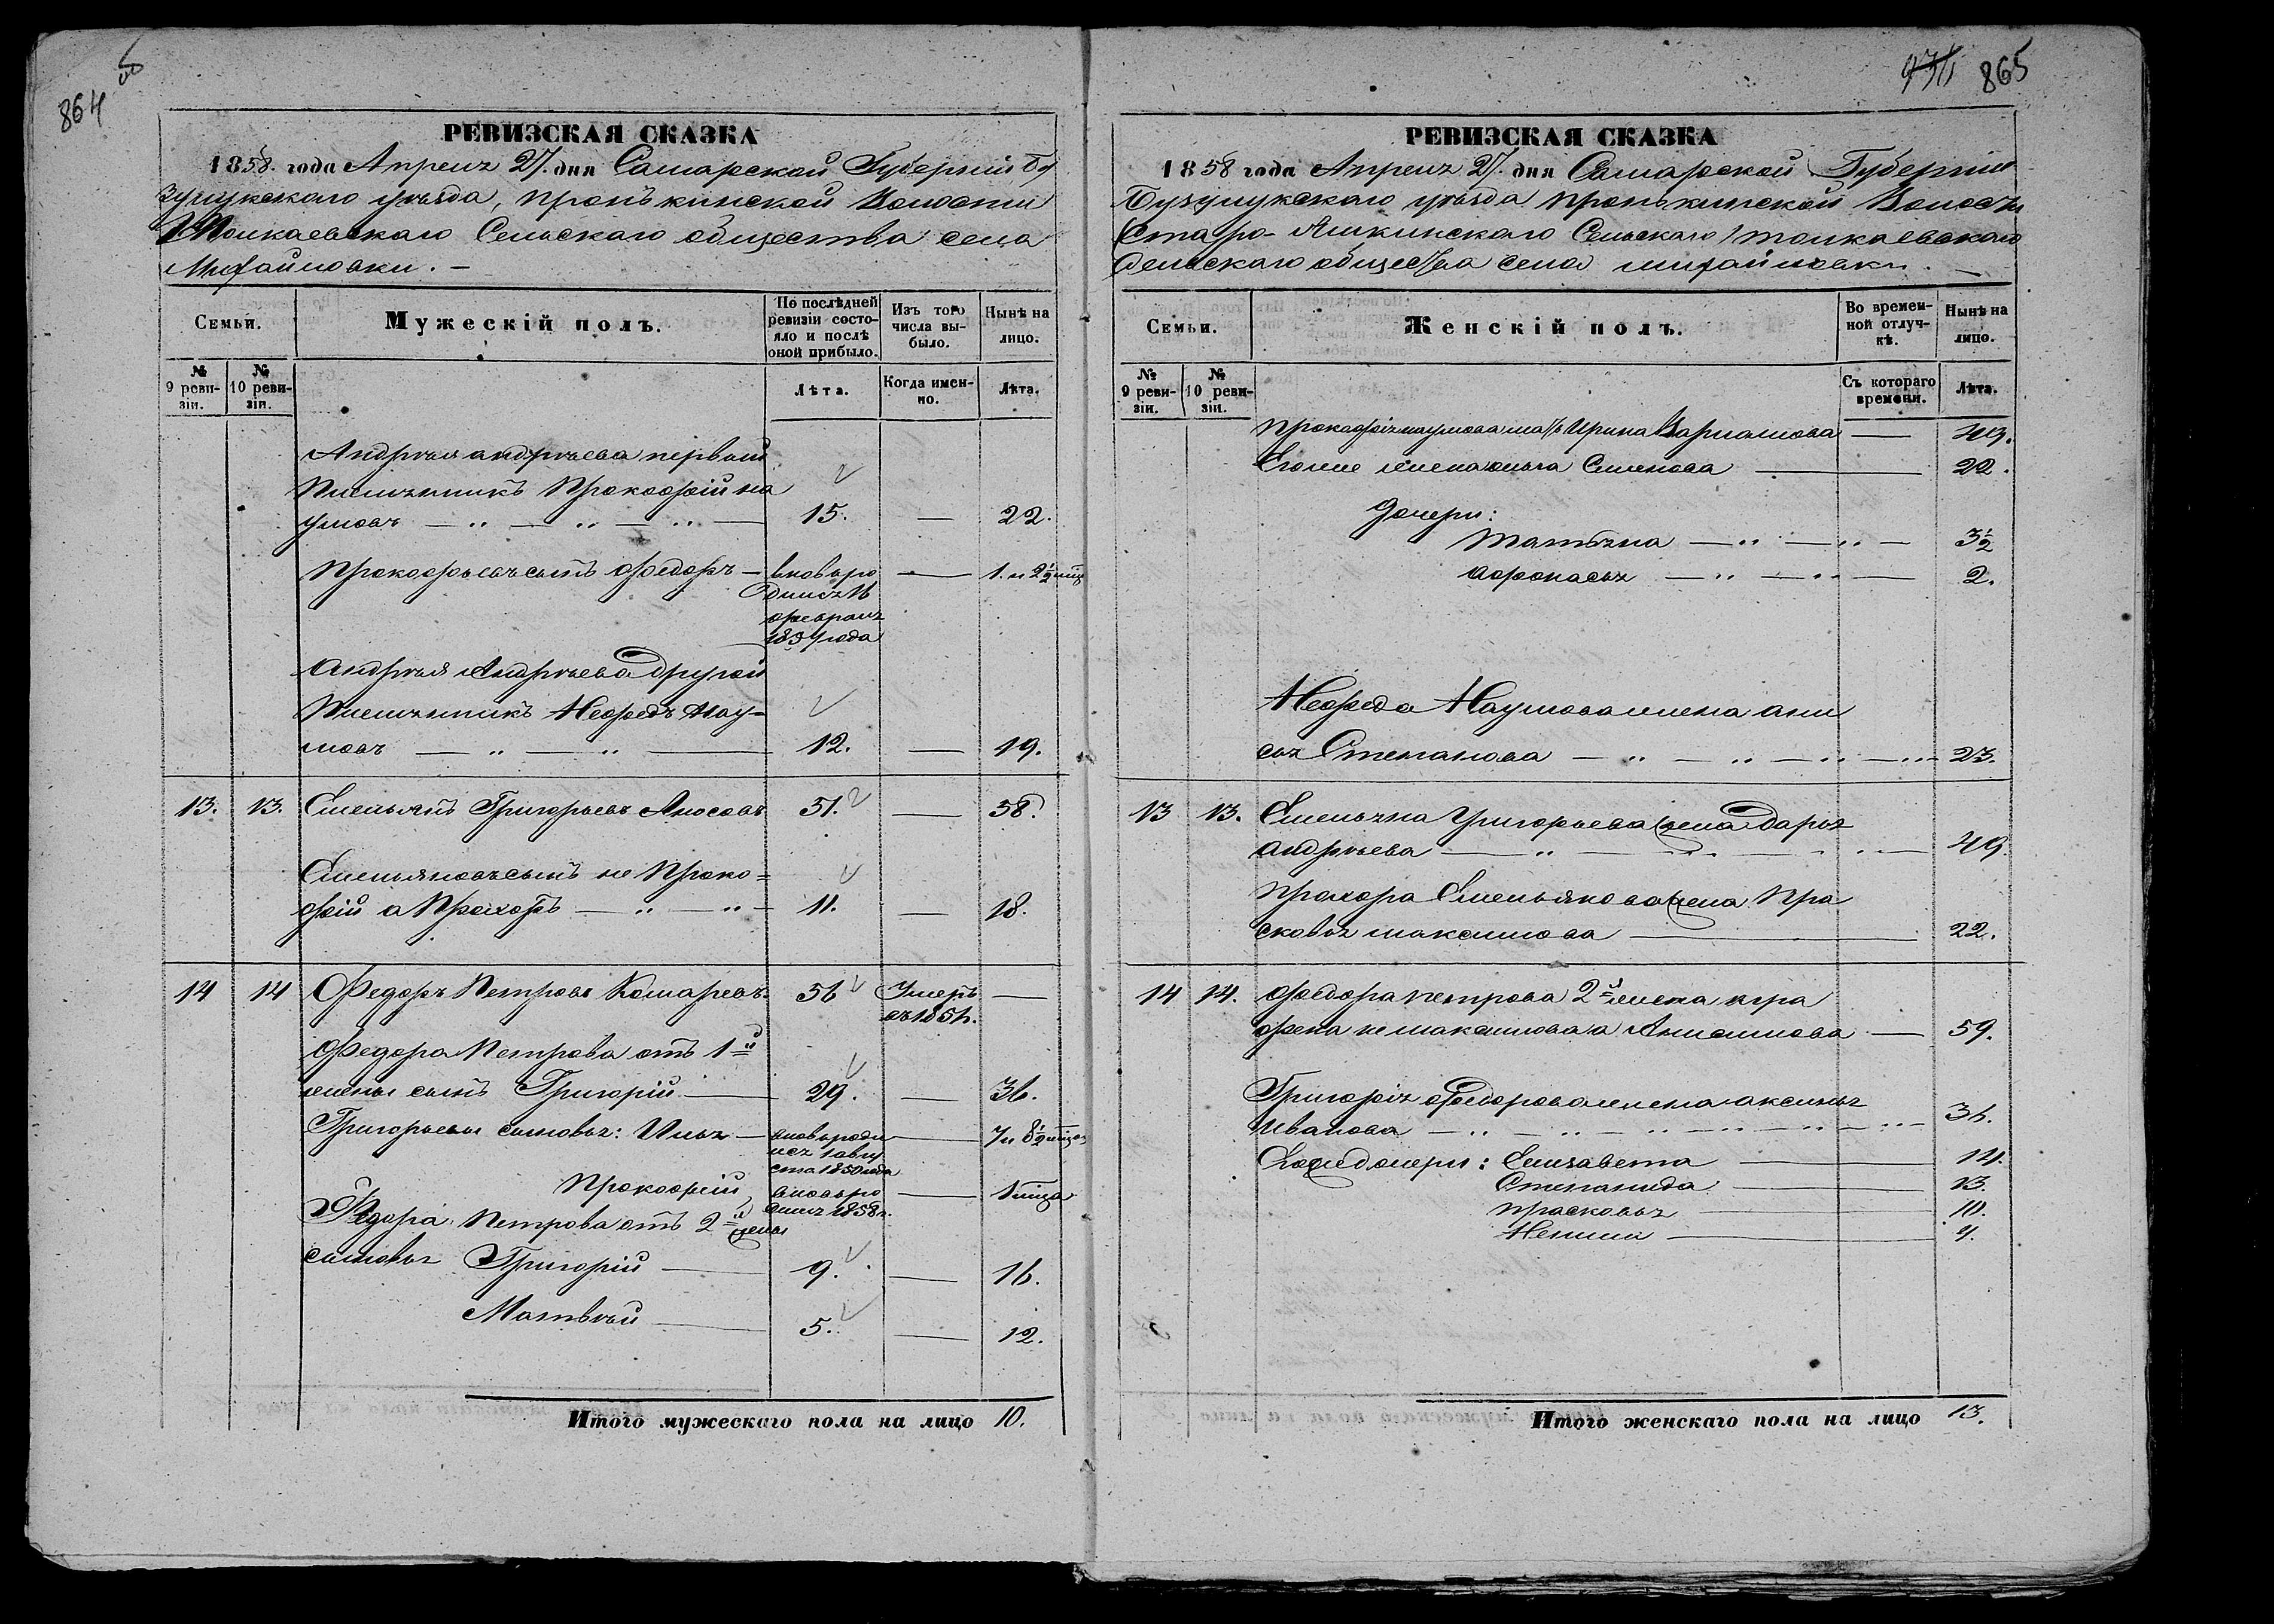 864 об
РЕВИЗСКАЯ СКАЗКА
1858. года Апреля 27. дня Самарской Губерніи Бу
зулукскаго уѣзда, Пронькинской Волости
Толкаевскаго Сельскаго общества села
Михайловки. —
Семьи.
Мужескій полъ.
По послѣдней ревизіи состо-яло и послѣ оной прибыло.
Изъ того числа вы-было.
Нынѣ на лицо.
№ 9 реви-зіи.
№ 10 реви-зіи.
Лѣта.
Когда имен-но.
Лѣта.
Андрѣя андрѣева первый
Племянникъ Прокофій На
умовъ — 15. — 22.
Прокофьевъ сынъ Федоръ — вновь ро — 1. и 2½ мѣс
дился
февраля
1857 года
Андрѣя Андрѣева другой
Племянникъ Нефедъ Нау-
мовъ — 12. — 19.
13. 13. Емельянъ Григорьевъ Аносовъ 51. — 58.
Емельяновъ сынъ не Проко=
фій а Прохоръ — 11. — 18.
14 14 Федоръ Петровъ Комаревъ. 56 Умеръ —
въ 1856.
Федора Петрова отъ 1й
жены сынъ Григорій — 29. — 36.
Григорьевы сыновья: Илья — вновь роди — 7 и 8½ мѣсяц
лся 1 авгу
ста 1850 года
Прокофій вновь ро — 1 мѣсяц
дился 1858 г.
Федора Петрова отъ 2й жены
сыновья Григорій — 9. — 16.
Матвѣй — 5. — 12.
Итого мужескаго пола на лицо 10.
865
РЕВИЗСКАЯ СКАЗКА
1858 года Апреля 27. дня Самарской Губерніи
Бузулукскаго уѣзда Пронькинской Волости
Старо- Сельскаго Толкаевскаго
Сельскаго общества села Михайловки. —
Семьи.
Женскій полъ.
Во времен-ной отлуч-кѣ.
Нынѣ на лицо.
№ 9 реви-зіи.
№ 10 реви-зіи.
Съ котораго времени.
Лѣта.
Прокофія наумова мать Ирина Варламова — 49.
Егоже жена Семенова — 22.
Дочери:
Татьяна — 3½
Афонасья — 2.
Нефеда Наумова жена ани
сья Степанова — 23.
13 13. Емельяна Григорьева жена Дарья
андрѣева — 49.
Прохора Емельянова жена Пра
сковья максимова — 22.
14 14. Федора петрова 2я жена агра
фена не максимова а Анисимова — 59.
Григорія Федорова жена аксинья
Иванова — 36.
Егоже дочери: Елизавета — 14.
Степанида — 13.
Прасковья — 10.
4.
Итого женскаго пола на лицо 13.